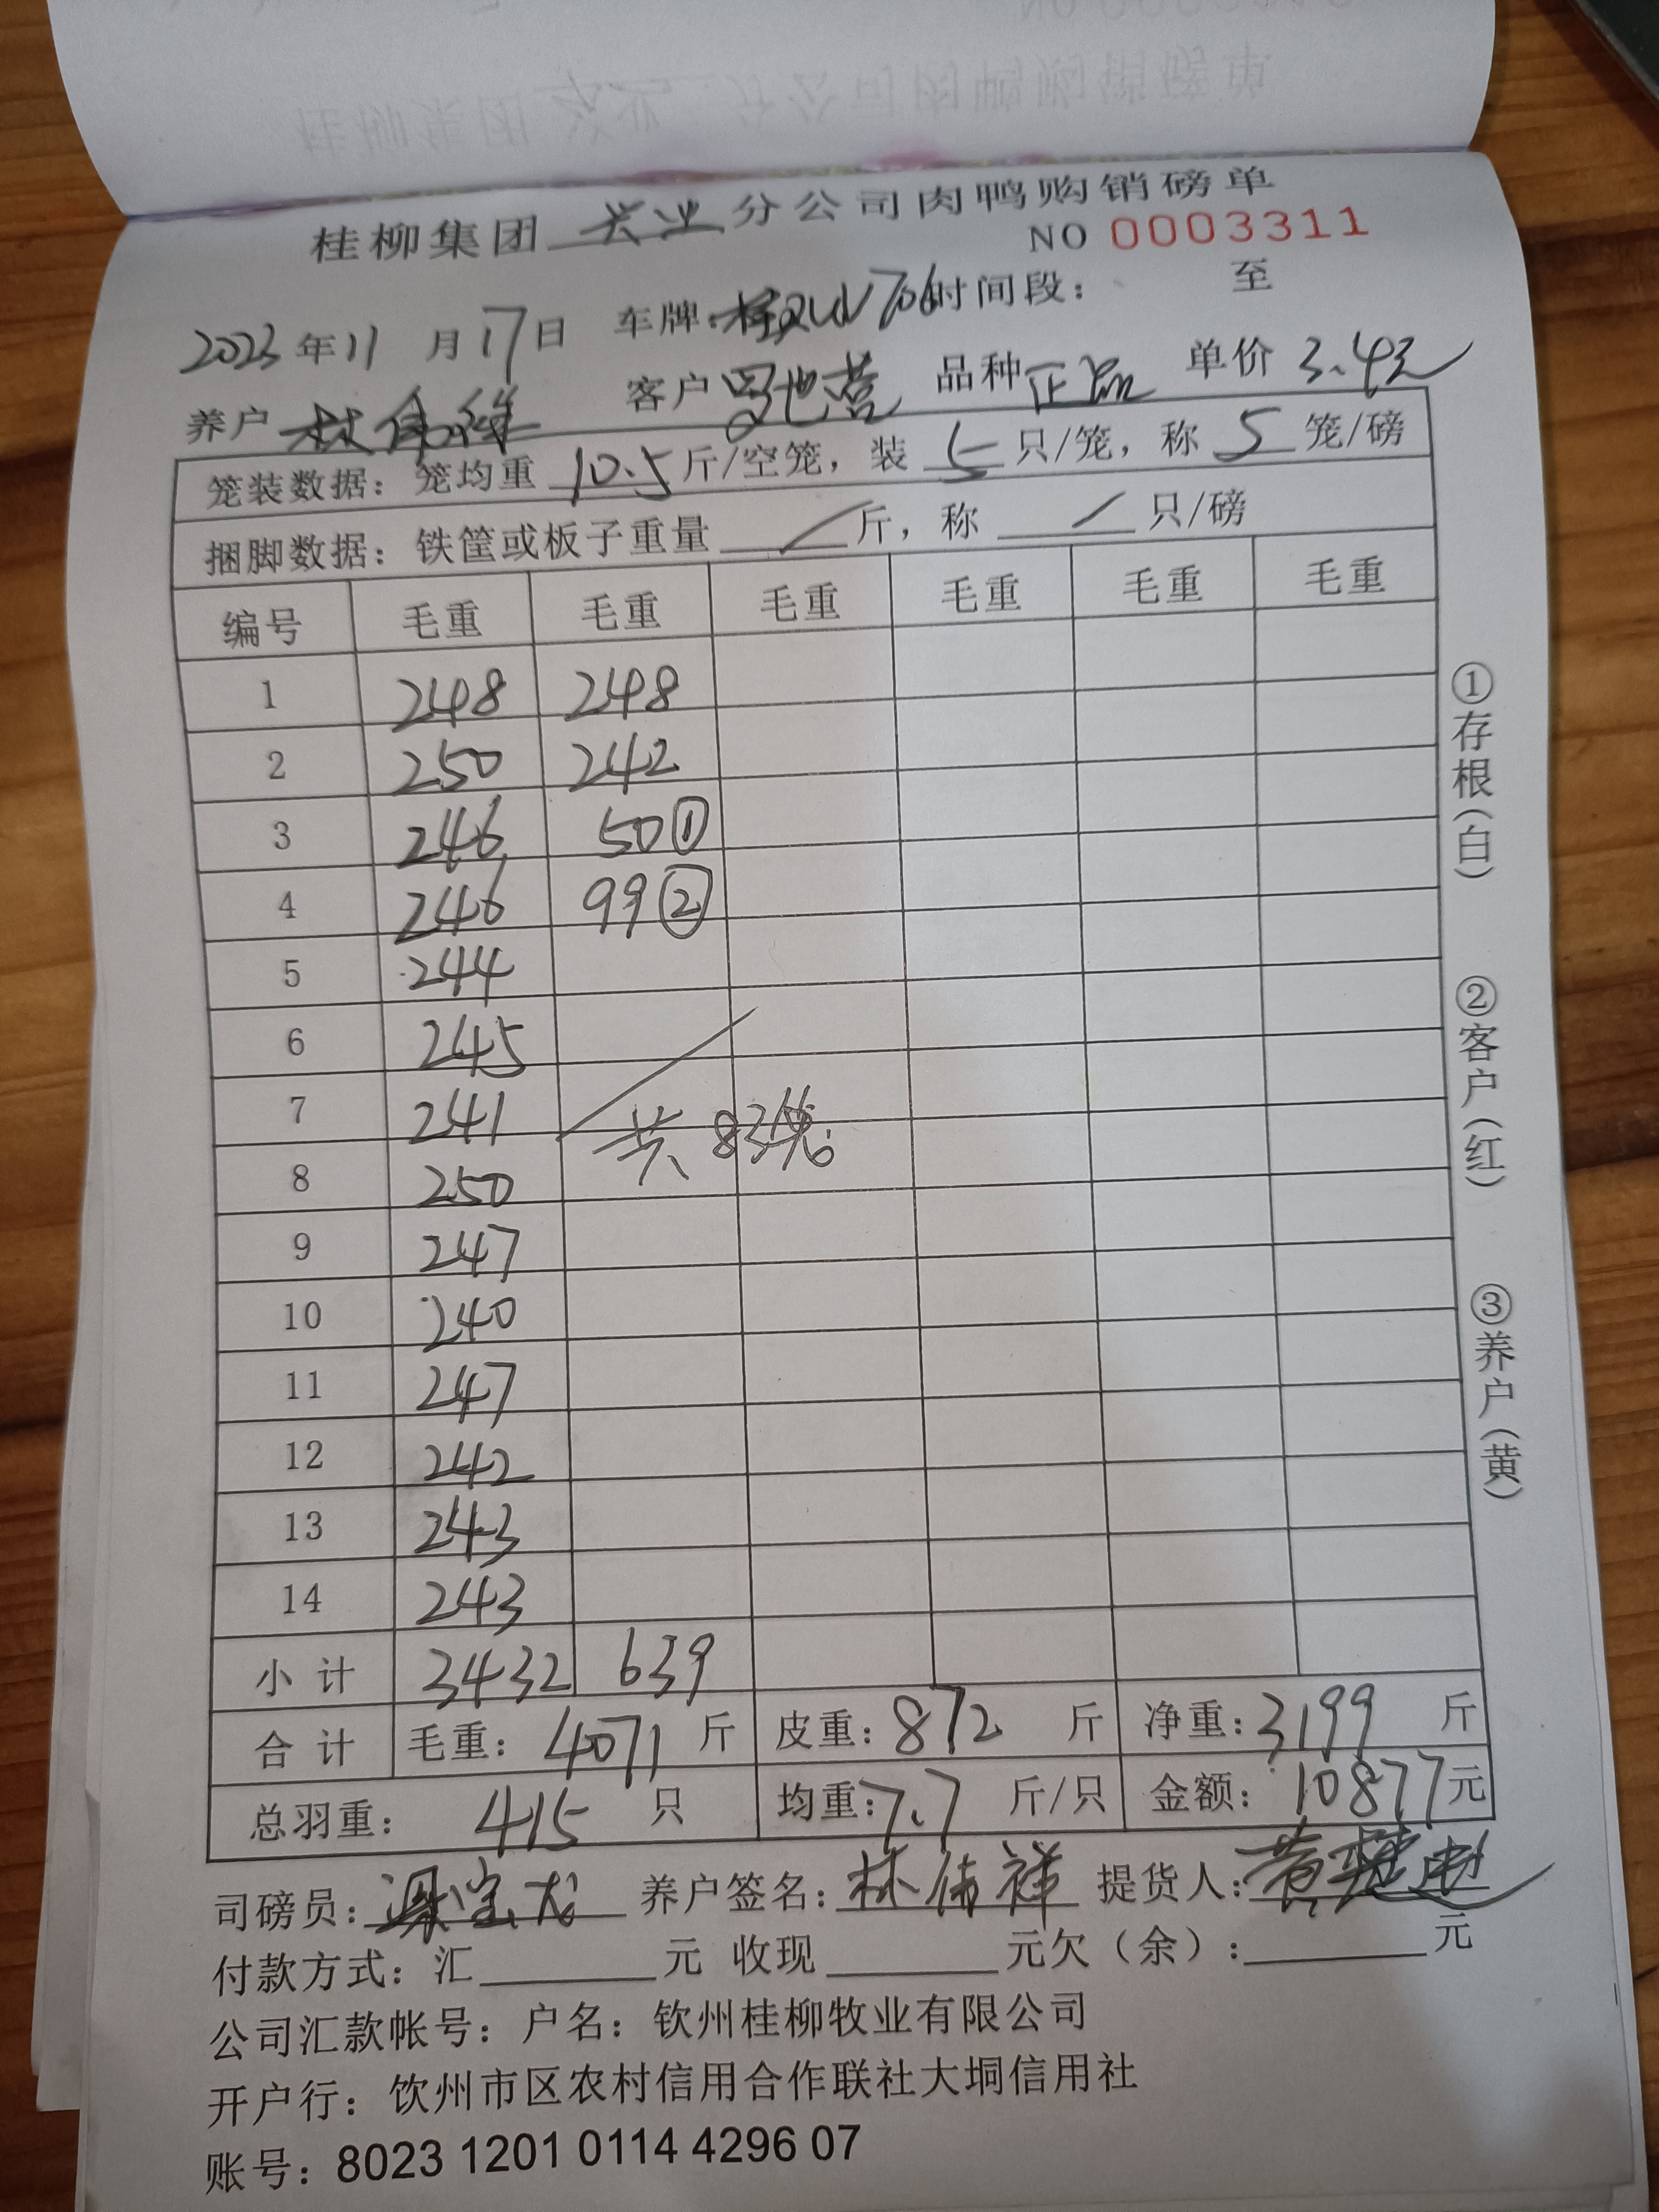 桂柳集团 兴业 分公司肉鸭购销磅单
NO 0003311
2023年11月17日 车牌: 时间段: 至
养户 林伟祥 客户 品种 正品 单价 3.4元
笼装数据: 笼均重 10.5 斤/空笼, 装 5 只/笼, 称 5 笼/磅
捆脚数据: 铁筐或板子重量 / 斤, 称 / 只/磅
编号 毛重 毛重 毛重 毛重 毛重 毛重
1 248 248
2 250 242
3 246 50①
4 246 99②
5 244
6 245
7 241
共83笼
8 250
9 247
10 240
11 247
12 242
13 243
14 243
小计 3432 639
合计 毛重: 4071 斤 皮重: 872 斤 净重: 3199 斤
总羽重: 415 只 均重: 7.7 斤/只 金额: 10877元
司磅员: 梁宝龙 养户签名: 林伟祥 提货人:
付款方式: 汇 元 收现 元欠(余): 元
公司汇款帐号: 户名: 钦州桂柳牧业有限公司
开户行: 钦州市区农村信用合作联社大垌信用社
账号: 8023 1201 0114 4296 07
①存根(白)
②客户(红)
③养户(黄)